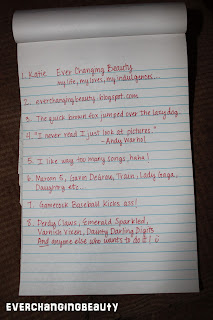 1. Katie Ever Changing Beauty
my life, my loves, my indulgences...
2. everchangingbeauty.blogspot.com
3. The quick brown fox jumped over the lazy dog.
4. "I never read I just look at pictures."
-Andy Warhol
5. I like way too many songs, haha!
6. Maroon 5, Gavin DeGraw, Train, Lady Gaga,
Daughtry etc...
7. Gamecock Baseball Kicks ass!
8. Nerdy Claws, Emerald Sparkled,
Varnish Vixen, Dainty Darling Digits
And anyone else who wants to do it!
EVERCHANGINGBEAUTY